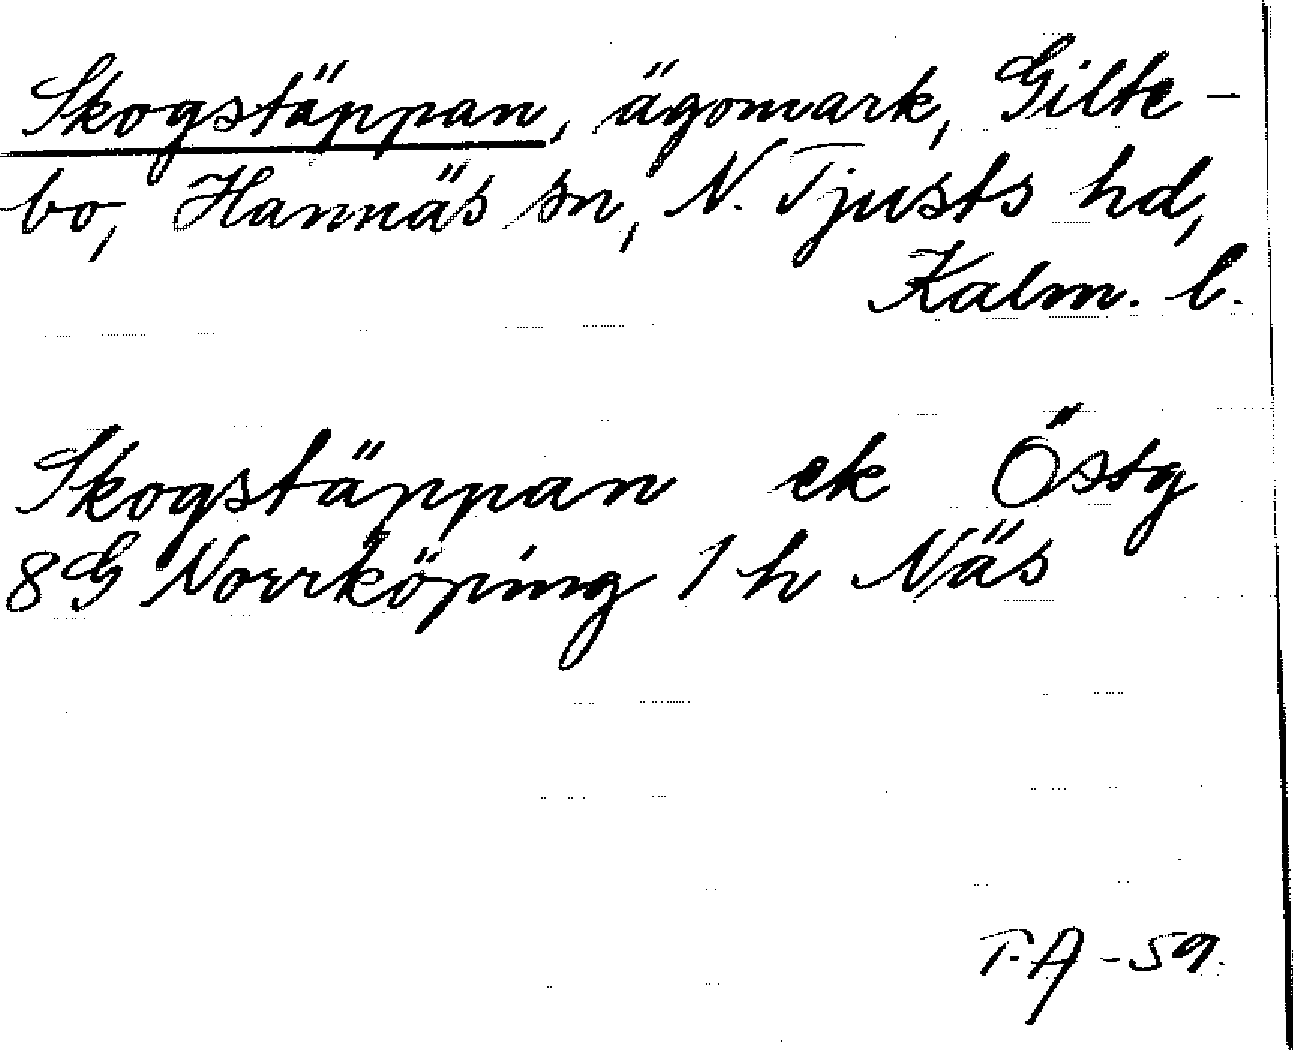 Skogstäppan, ägomark, Gilte-
bo, Hannäs sn, N. Tjusts hd,
Kalm. l.
Skogstäppan ek Östg
8G Norrköping 1 h Näs
T.A -59.